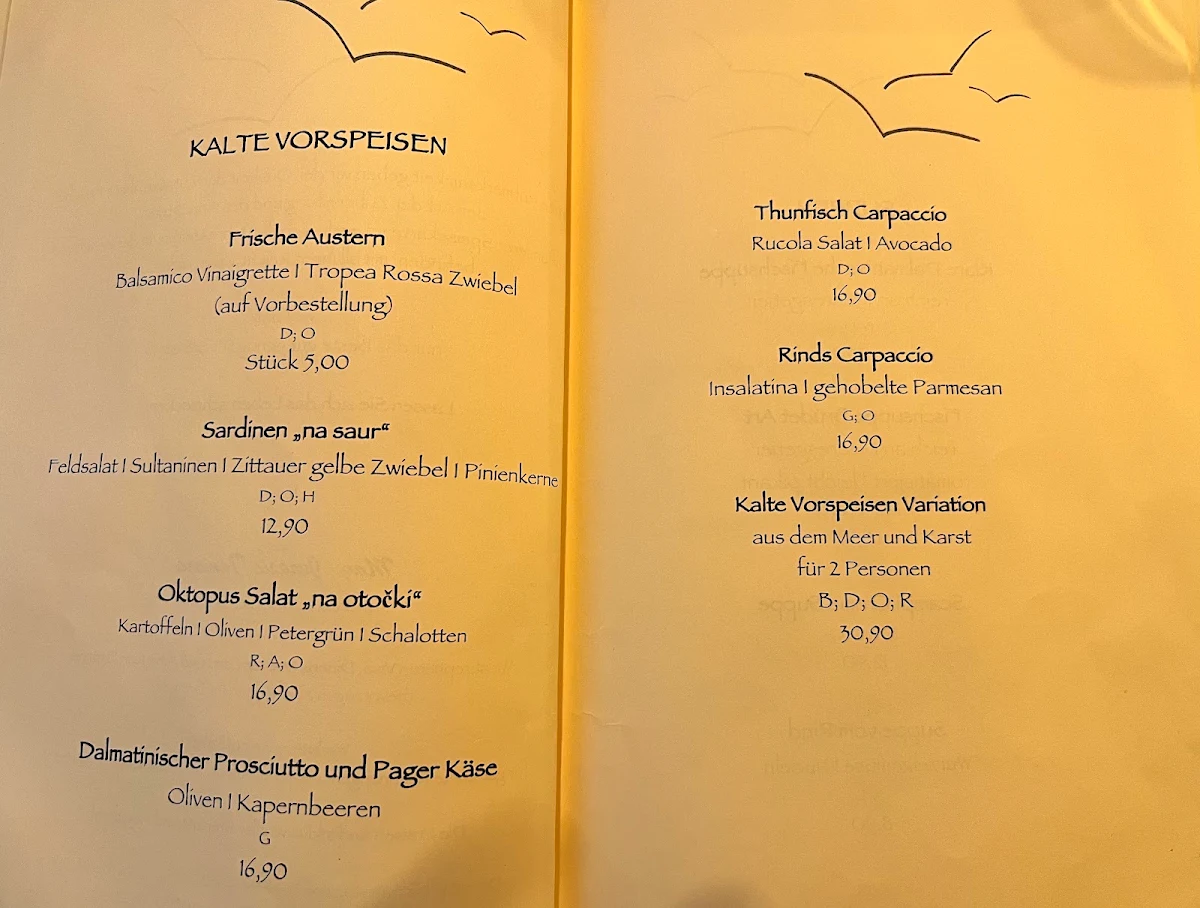 KALTE VORSPEISEN
Frische Austern
Balsamico Vinaigrette | Tropea Rossa Zwiebel
(auf Vorbestellung)
D; O
Stück 5,00
Sardinen „na saur“
Feldsalat | Sultaninen | Zittauer gelbe Zwiebel | Pinienkerne
D; O; H
12,90
Oktopus Salat „na otočki“
Kartoffeln | Oliven | Petergrün | Schalotten
R; A; O
16,90
Dalmatinischer Prosciutto und Pager Käse
Oliven | Kapernbeeren
G
16,90
Thunfisch Carpaccio
Rucola Salat | Avocado
D; O
16,90
Rinds Carpaccio
Insalatina | gehobelte Parmesan
G; O
16,90
Kalte Vorspeisen Variation
aus dem Meer und Karst
für 2 Personen
B; D; O; R
30,90